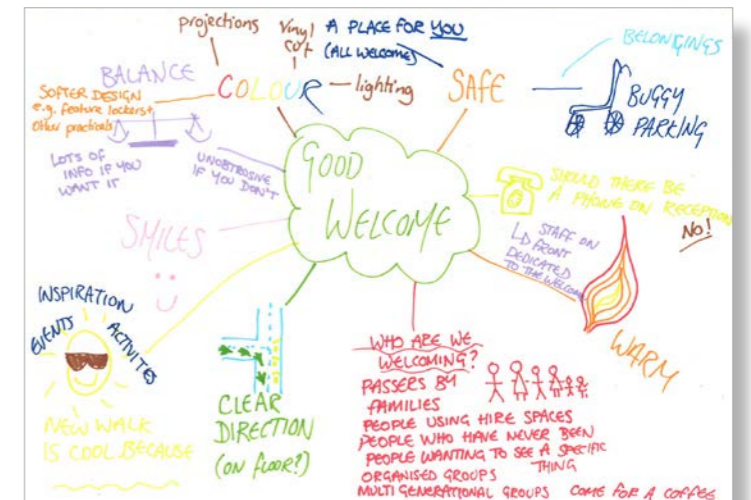 projections
vinyl
cut
A PLACE FOR YOU
(ALL WELCOME)
BELONGINGS
BALANCE
COLOUR
lighting
SAFE
SOFTER DESIGN
e.g. feature lockers +
other practicals
BUGGY
PARKING
LOTS OF
INFO IF YOU
WANT IT
UNOBTROSIVE
IF YOU DON'T
GOOD
WELCOME
SHOULD THERE BE
A PHONE ON RECEPTION
NO!
SMILES
STAFF ON
FRONT
DEDICATED
TO THE WELCOME
WARM
INSPIRATION
EVENTS
ACTIVITES
NEW WALK
IS COOL BECAUSE
CLEAR
DIRECTION
(ON FLOOR?)
WHO ARE WE
WELCOMING?
PASSERS BY
FAMILIES
PEOPLE USING HIRE SPACES
PEOPLE WHO HAVE NEVER BEEN
PEOPLE WANTING TO SEE A SPECIFIC
THING
ORGANISED GROUPS
MULTI GENERATIONAL GROUPS
COME FOR A COFFEE